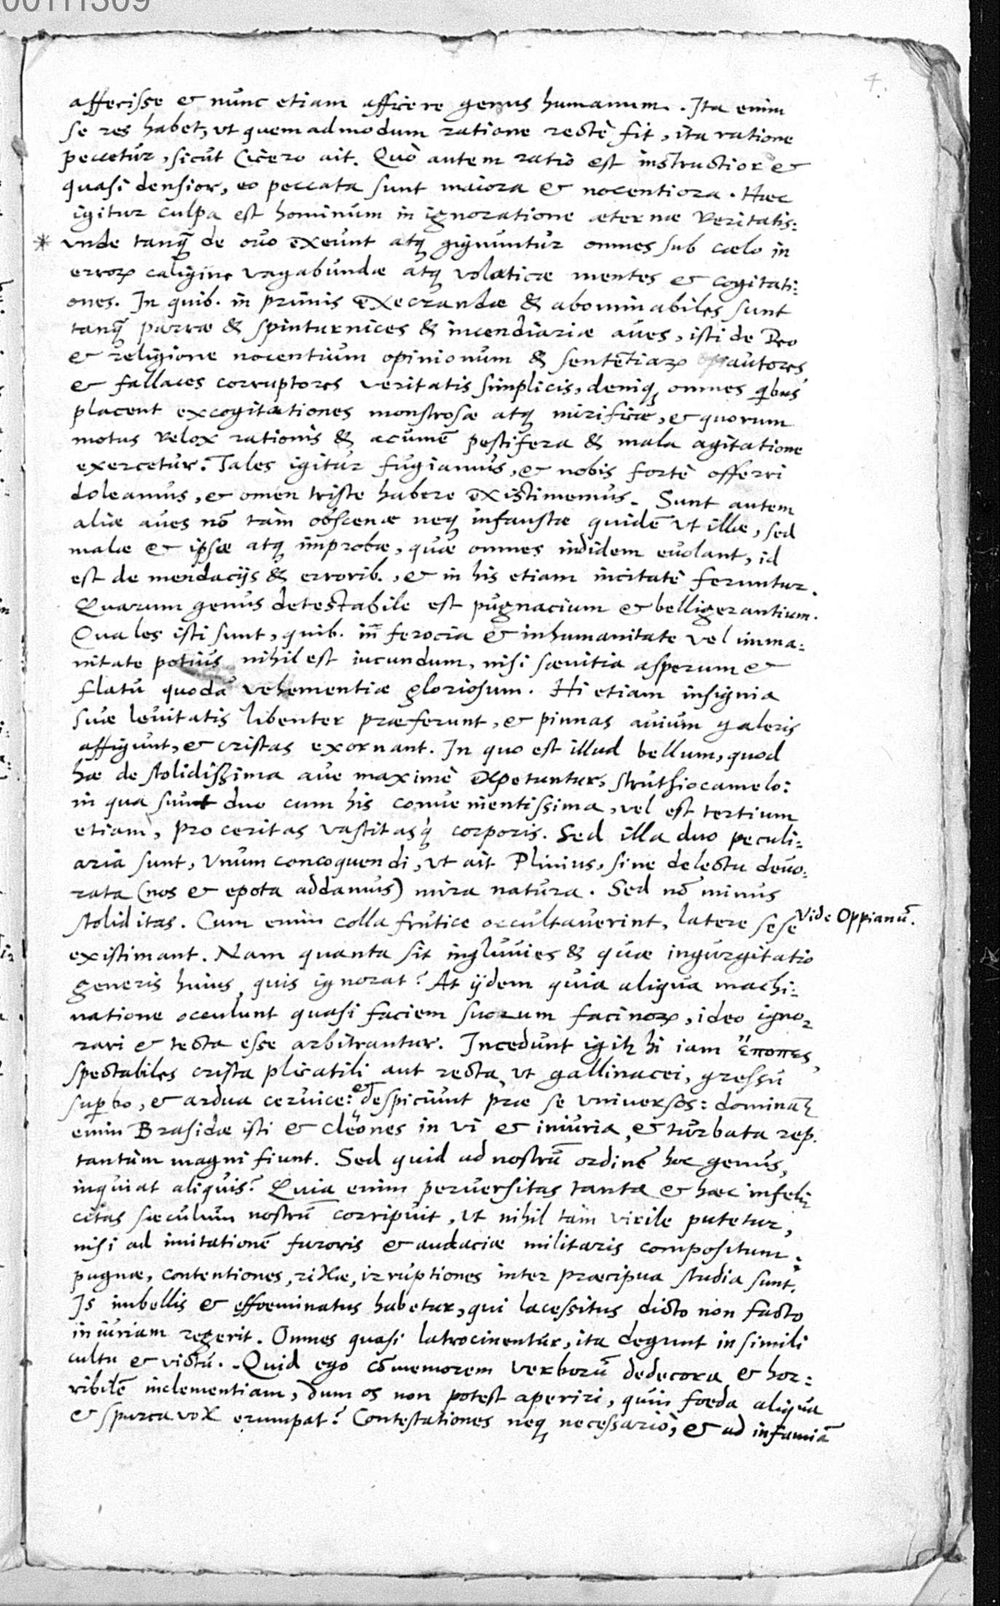 00111309
4.
affecisse & nunc etiam afficere genus humanum. Ita enim
se res habet, ut quemadmodum ratione rectè fit, ita ratione
peccetur, sicut Cicero ait. Quò autem ratio est instructior &
quasi densior, eo peccata sunt maiora & nocentiora. Hæc
igitur culpa est hominum in ignoratione æternæ veritatis:
* unde tanq̃ de ovo exeunt atq; gignuntur omnes sub cælo in
erroꝝ caligine vagabundæ atq; volaticæ mentes & cogitati:
ones. In quib. in primis execrandæ & abominabiles sunt
tanq̃ parræ & spinturnices & incendiariæ aves, isti de Deo
& religione nocentium opinionum & sententiaꝝ autores
& fallaces corruptores veritatis simplicis, deniq; omnes qibus
placent excogitationes monstrosæ atq; mirificæ, & quorum
motus velox rationis & acumẽ pestifera & mala agitatione
exercetur. Tales igitur fugiamus, & nobis fortè offerri
doleamus, & omen triste habere existimemus. Sunt autem
aliæ aves nõ tam obscenæ neq; infaustæ quidẽ ut illæ, sed
malæ & ipsæ atq; improbæ, quæ omnes indidem evolant, id
est de mendacijs & errorib., & in his etiam incitatè feruntur.
Quarum genus detestabile est pugnacium & belligerantium.
Quales isti sunt, quib. in ferocia & inhumanitate vel imma:
nitate potius nihil est iucundum, nisi sævitia asperum &
flatu quodã vehementiæ gloriosum. Hi etiam insignia
suæ levitatis libenter præferunt, & pinnas avium galeris
affigunt, & cristas exornant. In quo est illud bellum, quod
hæ de stolidissima ave maximè expetuntur, struthiocamelo:
in qua sunt duo cum his convenientissima, vel est tertium
etiam, proceritas vastitasq; corporis. Sed illa duo peculi:
aria sunt, Unum concoquendi, ut ait Plinius, sine delectu devo:
rata (nos & epota addamus) mira natura. Sed nõ minus
stoliditas. Cum enim colla frutice occultaverint, latere sese
Vide Oppianũ.
existimant. Nam quanta sit ingluvies & quæ ingurgitatio
generis huius, quis ignorat? At ijdem quia aliqua machi:
natione occulunt quasi faciem suorum facinoꝝ, ideo igno:
rari & tecta esse arbitrantur. Incedunt igit hi iam ἔποπες,
spectabiles crista plicatili aut recta, ut gallinacei, gressu
supbo, & ardua cervice: et despiciunt præ se universos: dominat
enim Brasidæ isti & cleones in vi & iniuria, & turbata rep.
tantum magni fiunt. Sed quid ad nostrũ ordinẽ hoc genus,
inquiat aliquis? Quia enim perversitas tanta & hæc infeli:
citas sæculum nostrũ corripuit, ut nihil tam virile putetur,
nisi ad imitationẽ furoris & audaciæ militaris compositum:
pugnæ, contentiones, rixæ, irruptiones inter præcipua studia sunt.
Is imbellis & effœminatus habetur, qui lacessitus dicto non facto
iniuriam regerit. Omnes quasi latrocinentur, ita degunt in simili
cultu & victu. Quid ego cõmemorem verborũ dedecora & hor:
ribilẽ inclementiam, dum os non potest aperiri, quin foeda aliqua
& spurca vox erumpat? Contestationes neq; necessariò, & ad infamiã